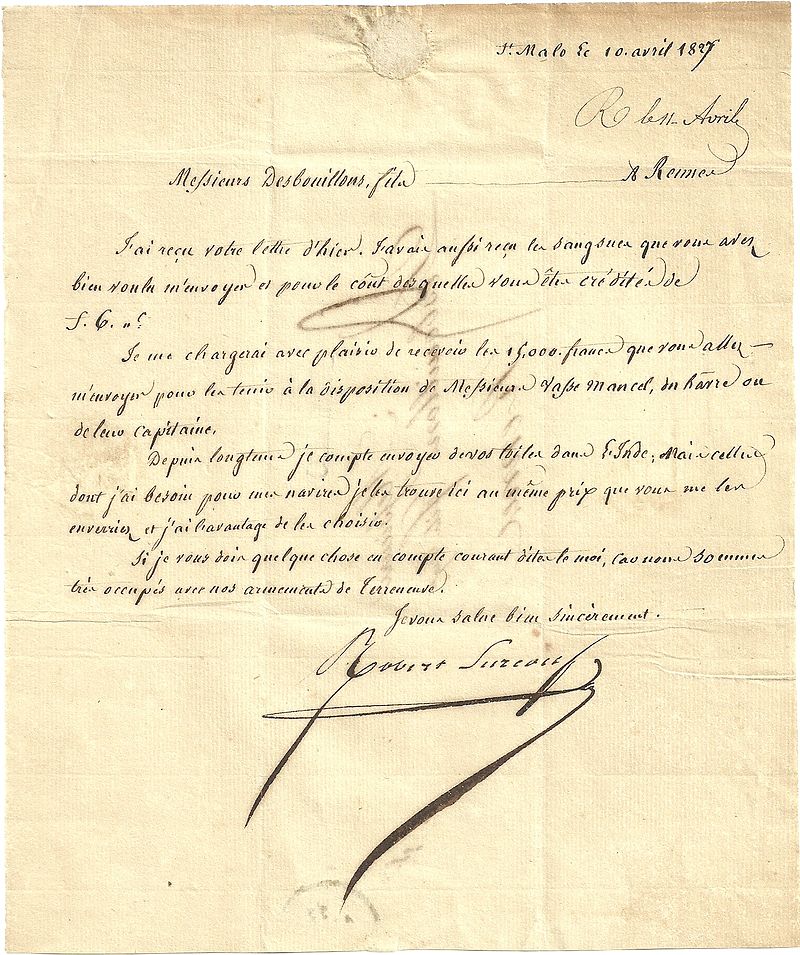 St. Malo le 10. avril 1827
R le 11 Avril
Messieurs Desbouillons, fils A Rennes
J'ai reçu votre lettre d'hier. J'avais aussi reçu les sangsues que vous avez
bien voulu m'envoyer et pour le coût desquelles vous êtes crédités de
f. 6. "c.
Je me chargerai avec plaisir de recevoir les 15,000. francs que vous allez
m'envoyer pour les tenir à la disposition de Messieurs Vasse Mancel, du hâvre ou
de leur capitaine.
Depuis longtems je compte envoyer de vos toiles dans L'Inde; Mais celles
dont j'ai besoin pour mes navires je les trouve ici au même prix que vous me les
enverriez et j'ai l'avantage de les choisir.
Si je vous dois quelque chose en compte courant dites le moi, car nous sommes
très occupés avec nos armements de Terreneuve.
Je vous salue bien sincèrement.
Robert Surcouf